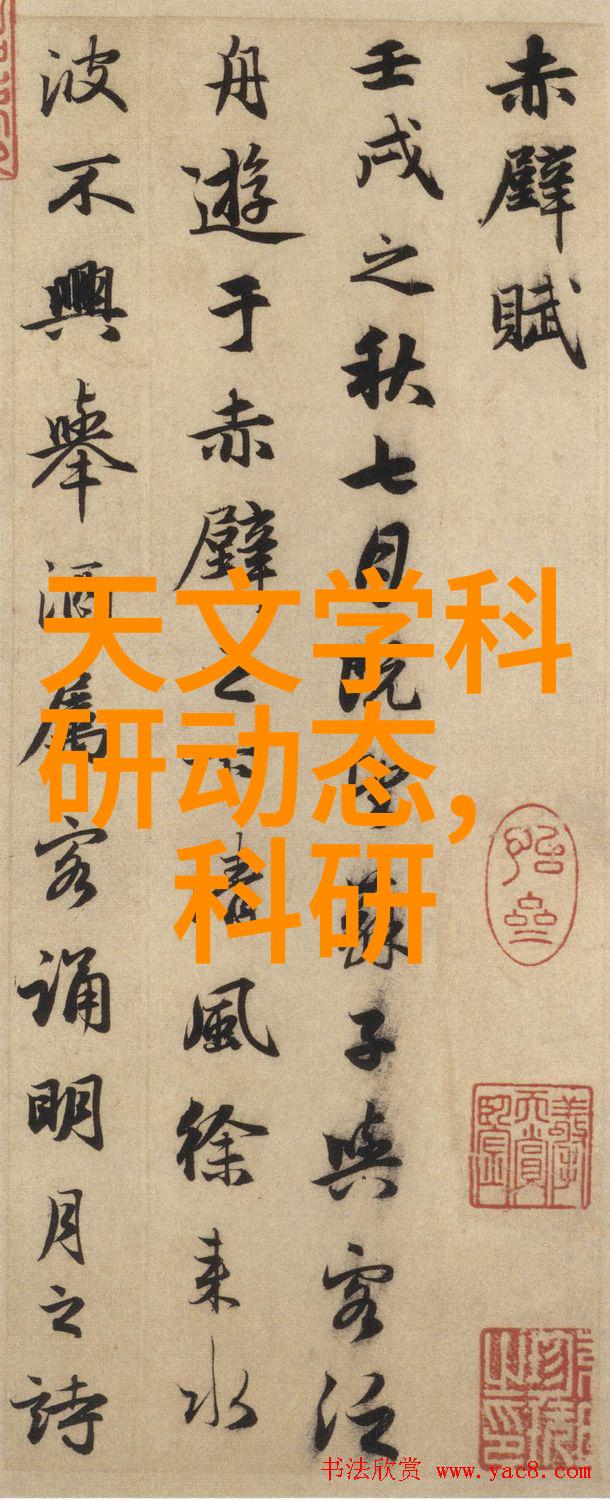 赤壁賦
壬戌之秋七月既望蘇子與客泛
舟遊于赤壁之下清風徐来水
波不興舉酒属客誦明月之詩
天文学科
研动态,
科研
书法欣赏 www.yac8.com